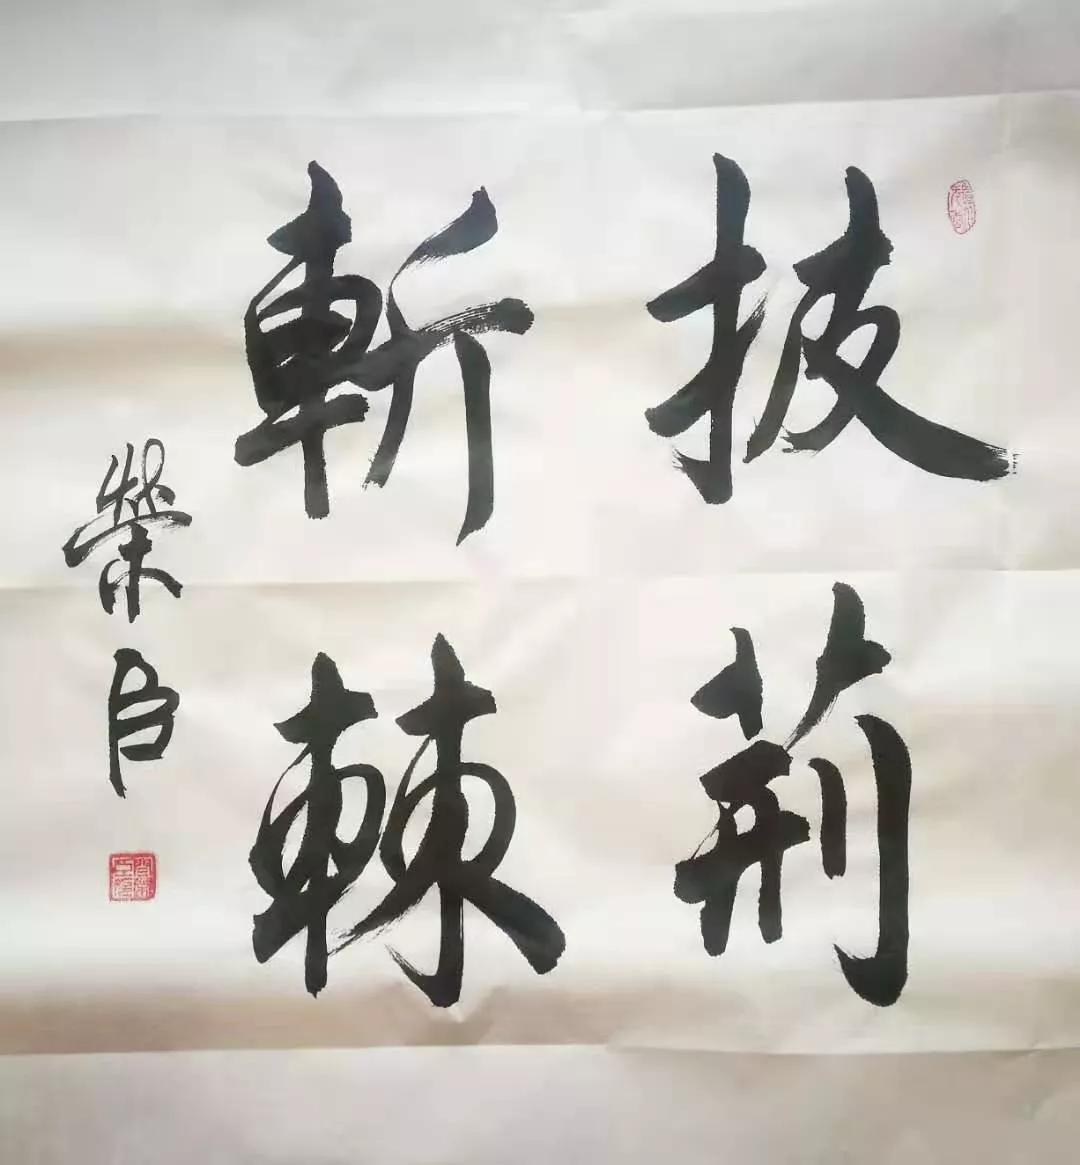 披荊
斬棘
榮